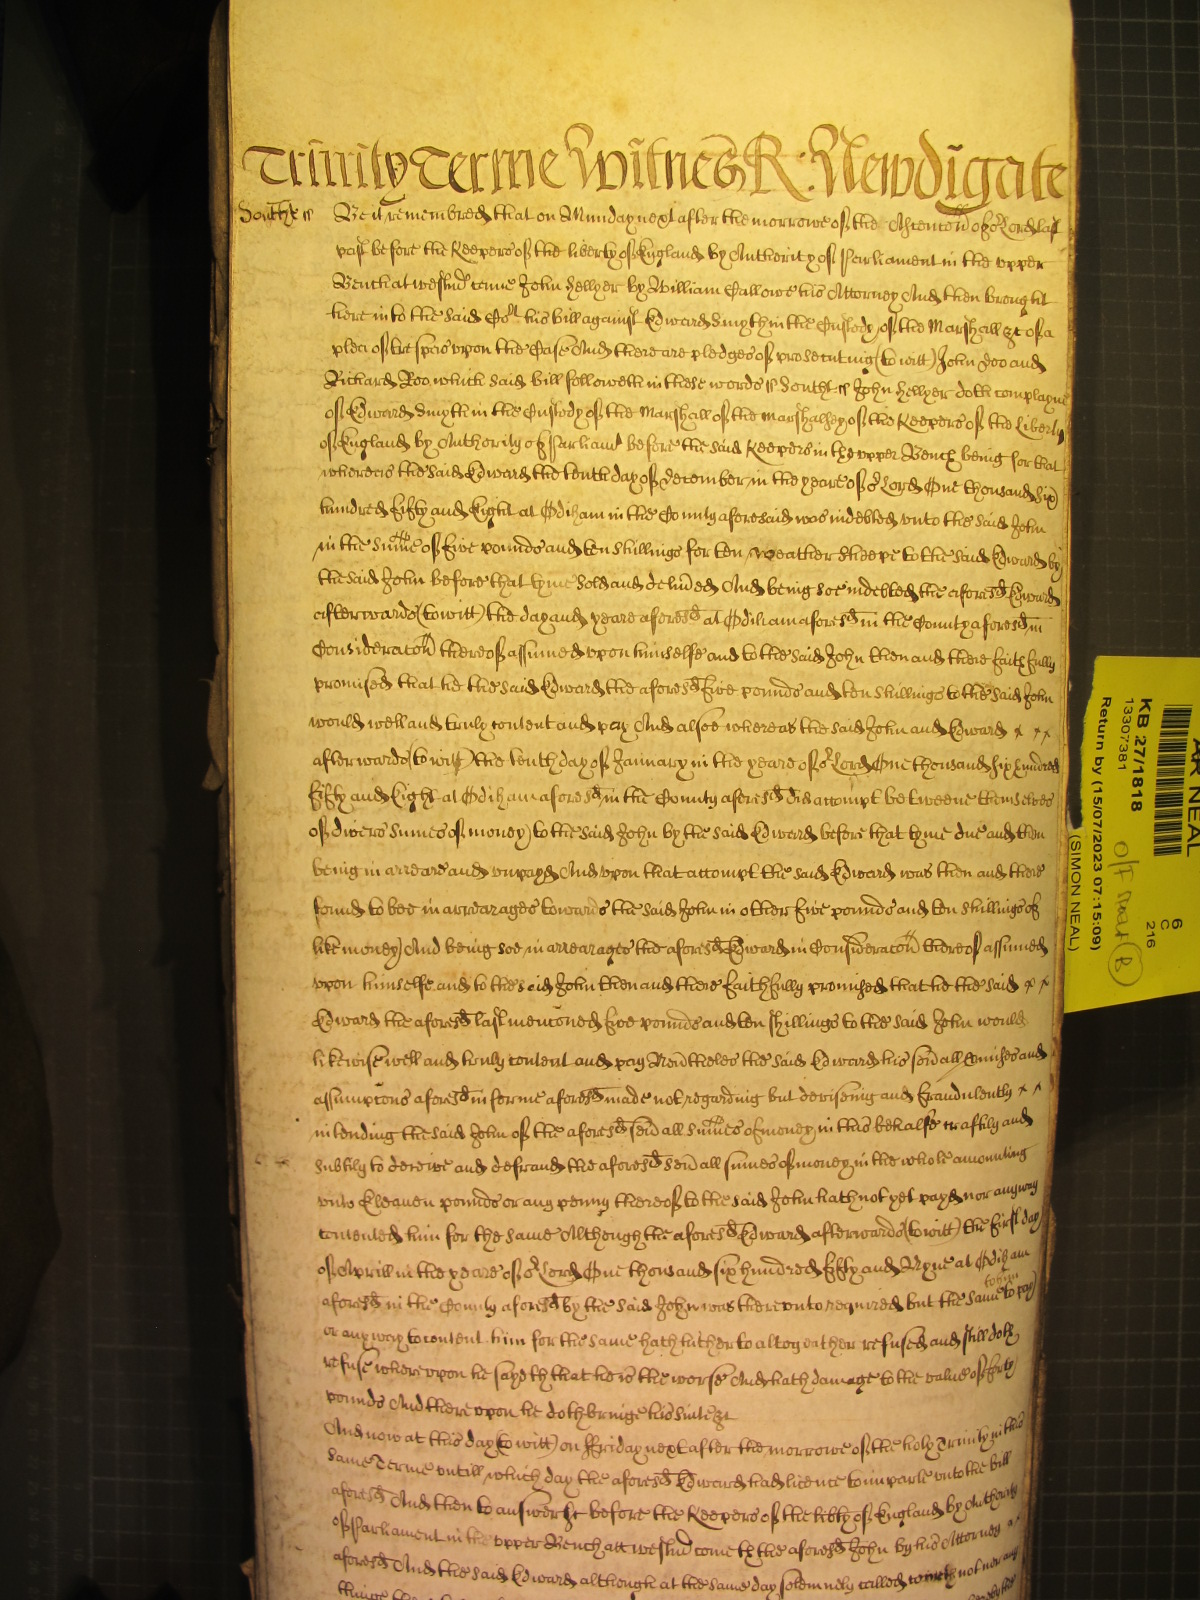 Trinity Terme Witnes R: Newdigate
South ss Be it remembred that on Munday next after the morrowe of the Ascencon of or Lord last
past before the Keepers of the liberty of England by Authority of Parliament in the upper
Bench at Westmr came John Hellyer by William Gallowe his Attorney And then brought
here into the said Cort his bill against Edward Smyth in the Custody of the Marshall &c of a
plea of trespas upon the Case And there are pledges of prosecuting (to witt) John Doo and
Richard Roo which said bill followeth in these words ss South ss John Hellyer doth complayne
of Edward Smyth in the Custody of the Marshall of the Marshalsey of the Keepers of the Liberty
of England by Authority of Parliamt before the said Keepers in the upper Bench being for that
whereas the said Edward the tenth day of December in the yeare of or Lord One thousand six
hundred fifty and Eight at Odiham in the County aforesaid was indebted unto the said John
in the sume of five pounds and ten shillings for ten weather sheepe to the said Edward by
the said John before that tyme sold and delived And being soe indebted the aforesd Edward
afterwards (to witt) the day and yeare aforesd at Odiham aforesd in the County aforesd in
Consideracon thereof assumed upon himselfe and to the said John then and there faithfully
promised that he the said Edward the aforesd five pounds and ten shillings to the said John
would well and truly content and pay And alsoe whereas the said John and Edward x x x
afterwards (to witt) the tenth day of January in the yeare of or Lord One thousand six hundred
fifty and Eight at Odiham aforesd in the County aforesd did attompt betweene themselves
of divers sumes of money to the said John by the said Edward before that tyme due and then
being in arreare and unpayd And upon that attompt the said Edward was then and there
found to bee in arrearages towards the said John in other five pounds and ten shillings of
like money And being soe in arrearages the aforesd Edward in Consideracon thereof assumed
upon himselfe and to the said John then and there faithfully promised that he the said x x
Edward the aforesd last menconed five pounds and ten shillings to the said John would
likewise well and truly content and pay Nevtheles the said Edward his sevall promises and
assumptons aforesd in forme aforesd made not regarding but deviseing and fraudulently x x
intending the said John of the aforesd sevall sumes of money in this behalfe craftily and
subtily to deceive and defraud the aforesd sevall sumes of money in the whole amounting
unto Eleaven pounds or any penny thereof to the said John hath not yet payd nor anyway
contented him for the same Although the aforesd Edward afterwards (to witt) the first day
of Aprill in the yeare of or Lord One thousand six hundred fifty and Nyne at Odiham
aforesd in the County aforesd by the said John was thereunto required but the same to him to pay
or anyway to content him for the same hath hitherto altogeather refused and still doth
refuse whereupon he sayeth that he is the worse And hath damage to the value of
pounds And thereupon he doth bringe his suite &c
And now at this day (to witt) on Friday next after the morrowe of the holy Trinity in this
same Terme untill which day the aforesd Edward had licence to imparle unto the bill
aforesd And then to answer &c before the Keepers of the libty of England by Authority
of Parliament in the upper Bench att Westmr cometh the aforesd John by his Attorney
aforesd And the said Edward although at the same day solemnely called cometh not nor any
KB 27/1818
13307381
Return by (15/07/2023 07:15:09)
(SIMON NEAL)
6
C
216
AR NEAL